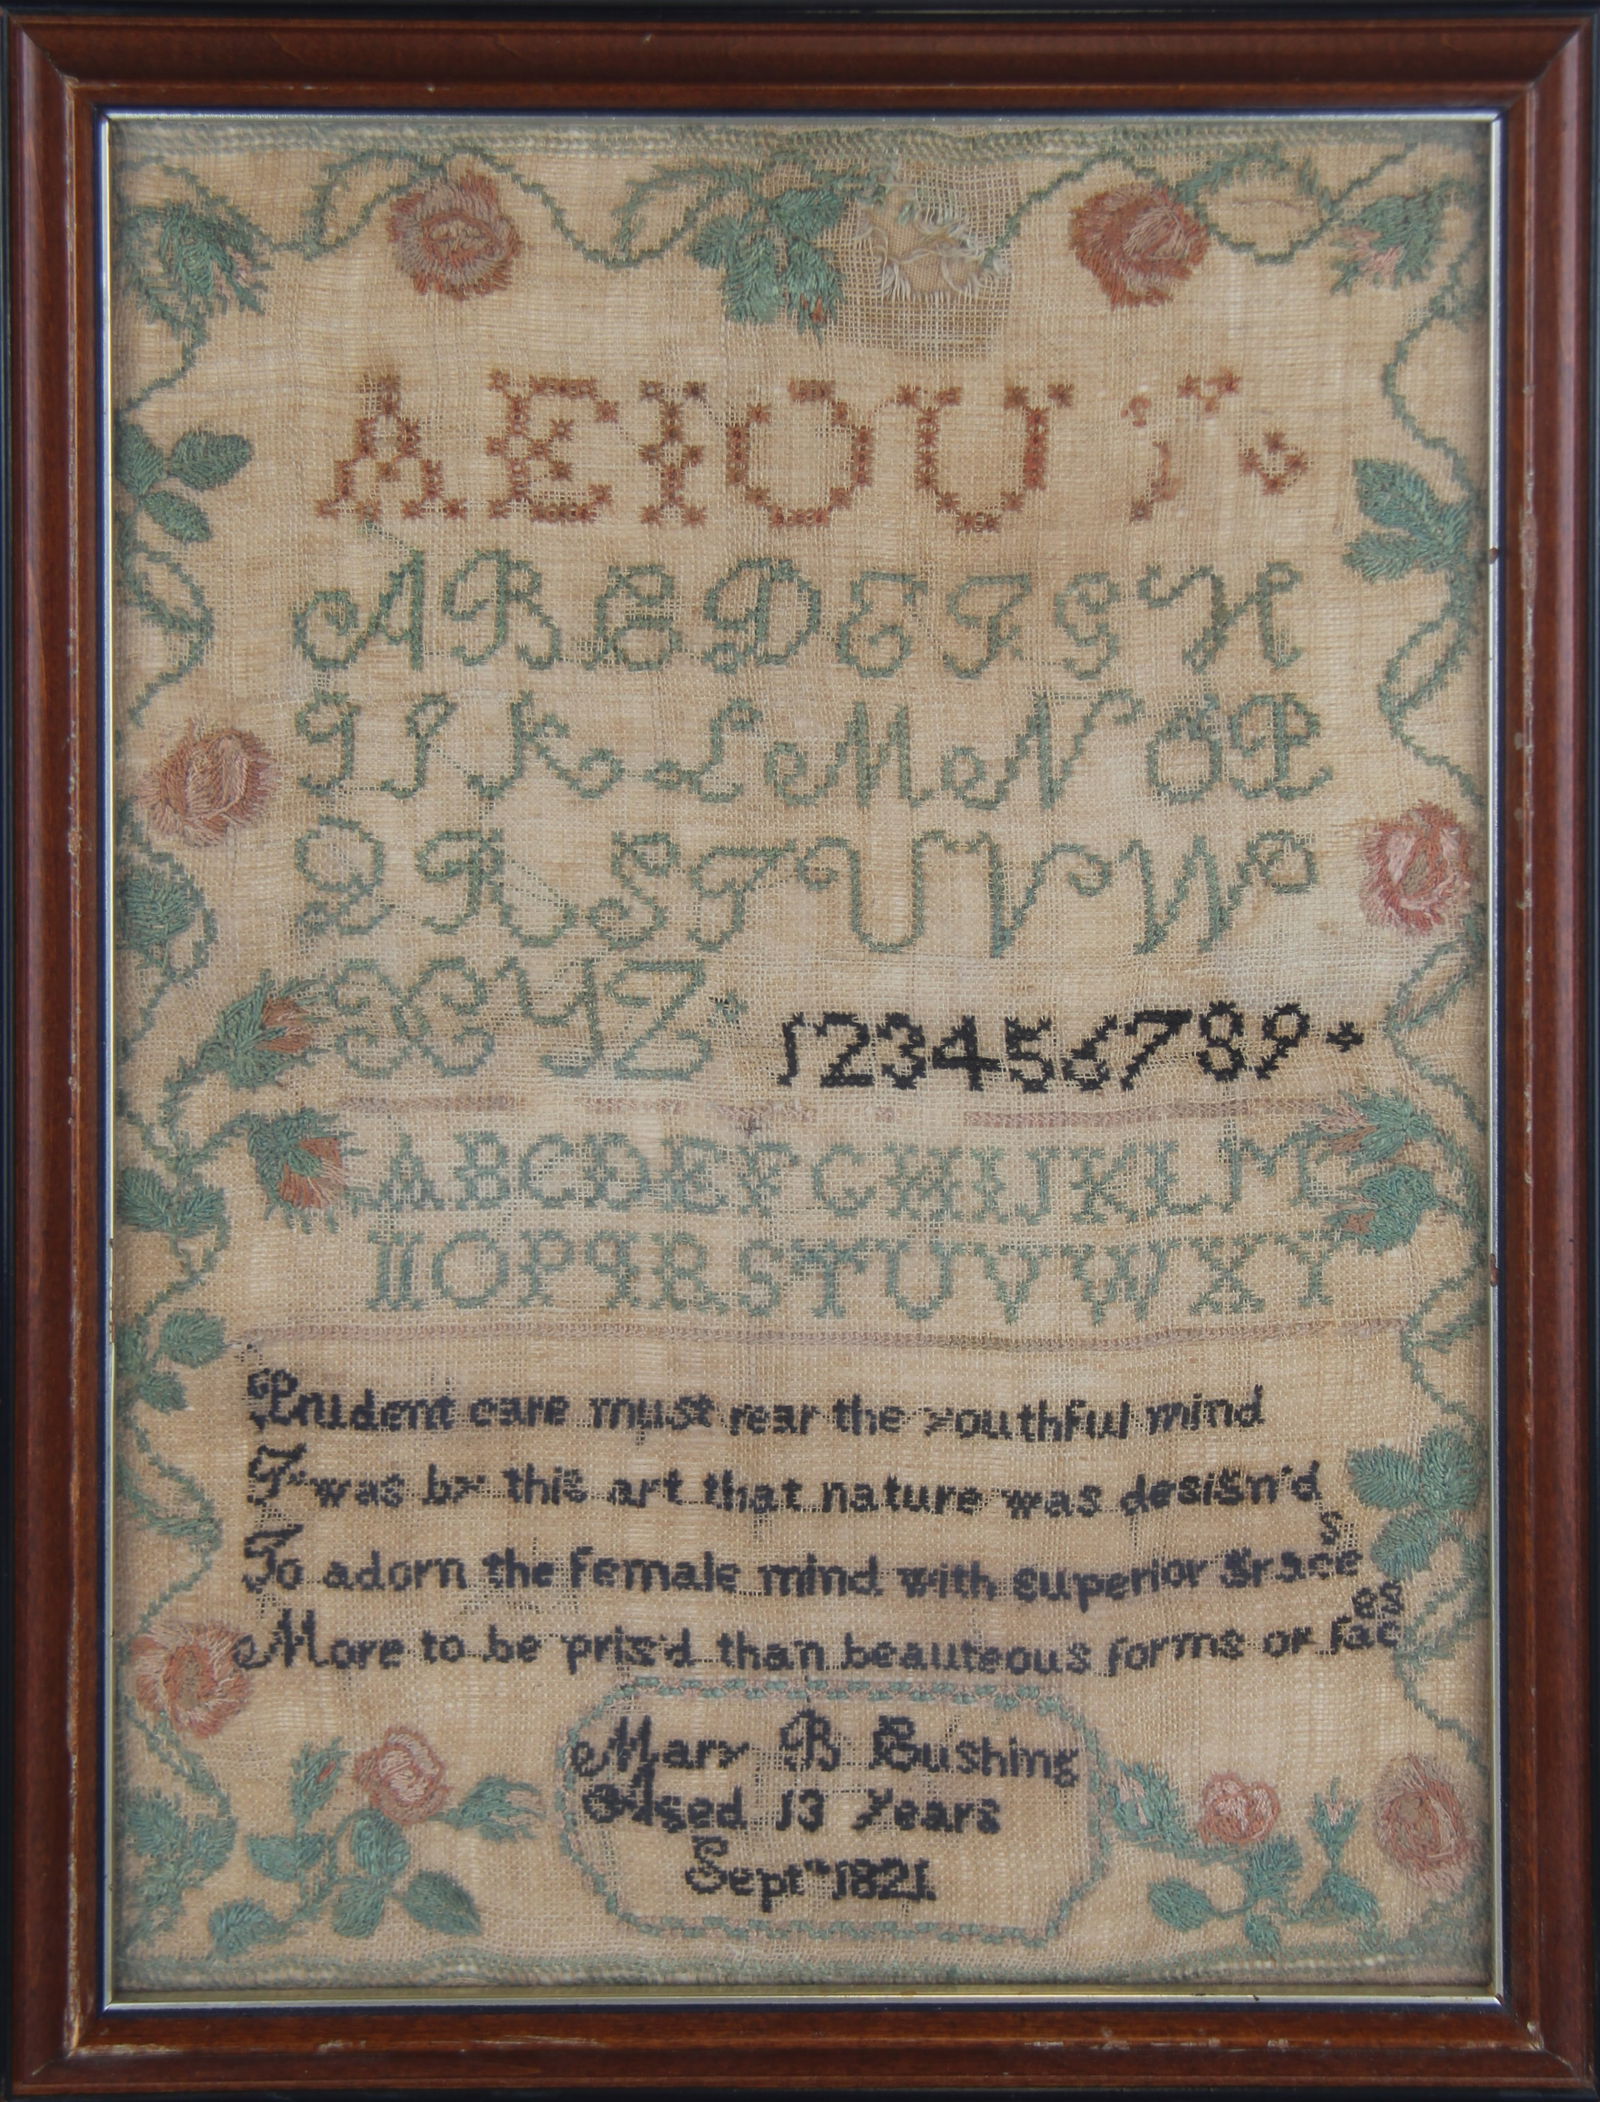 AEIOU Y
ABCDEFGH
IJKLMNOP
QRSTUVW
XYZ 123456789
ABCDEFGHIJKLM
NOPQRSTUVWXY
Prudent care must rear the youthful mind
T was by this art that nature was design'd
To adorn the female mind with superior graces
More to be pris'd than beauteous forms or faces
Mary B Cushing
Aged 13 Years
Septr 1821.